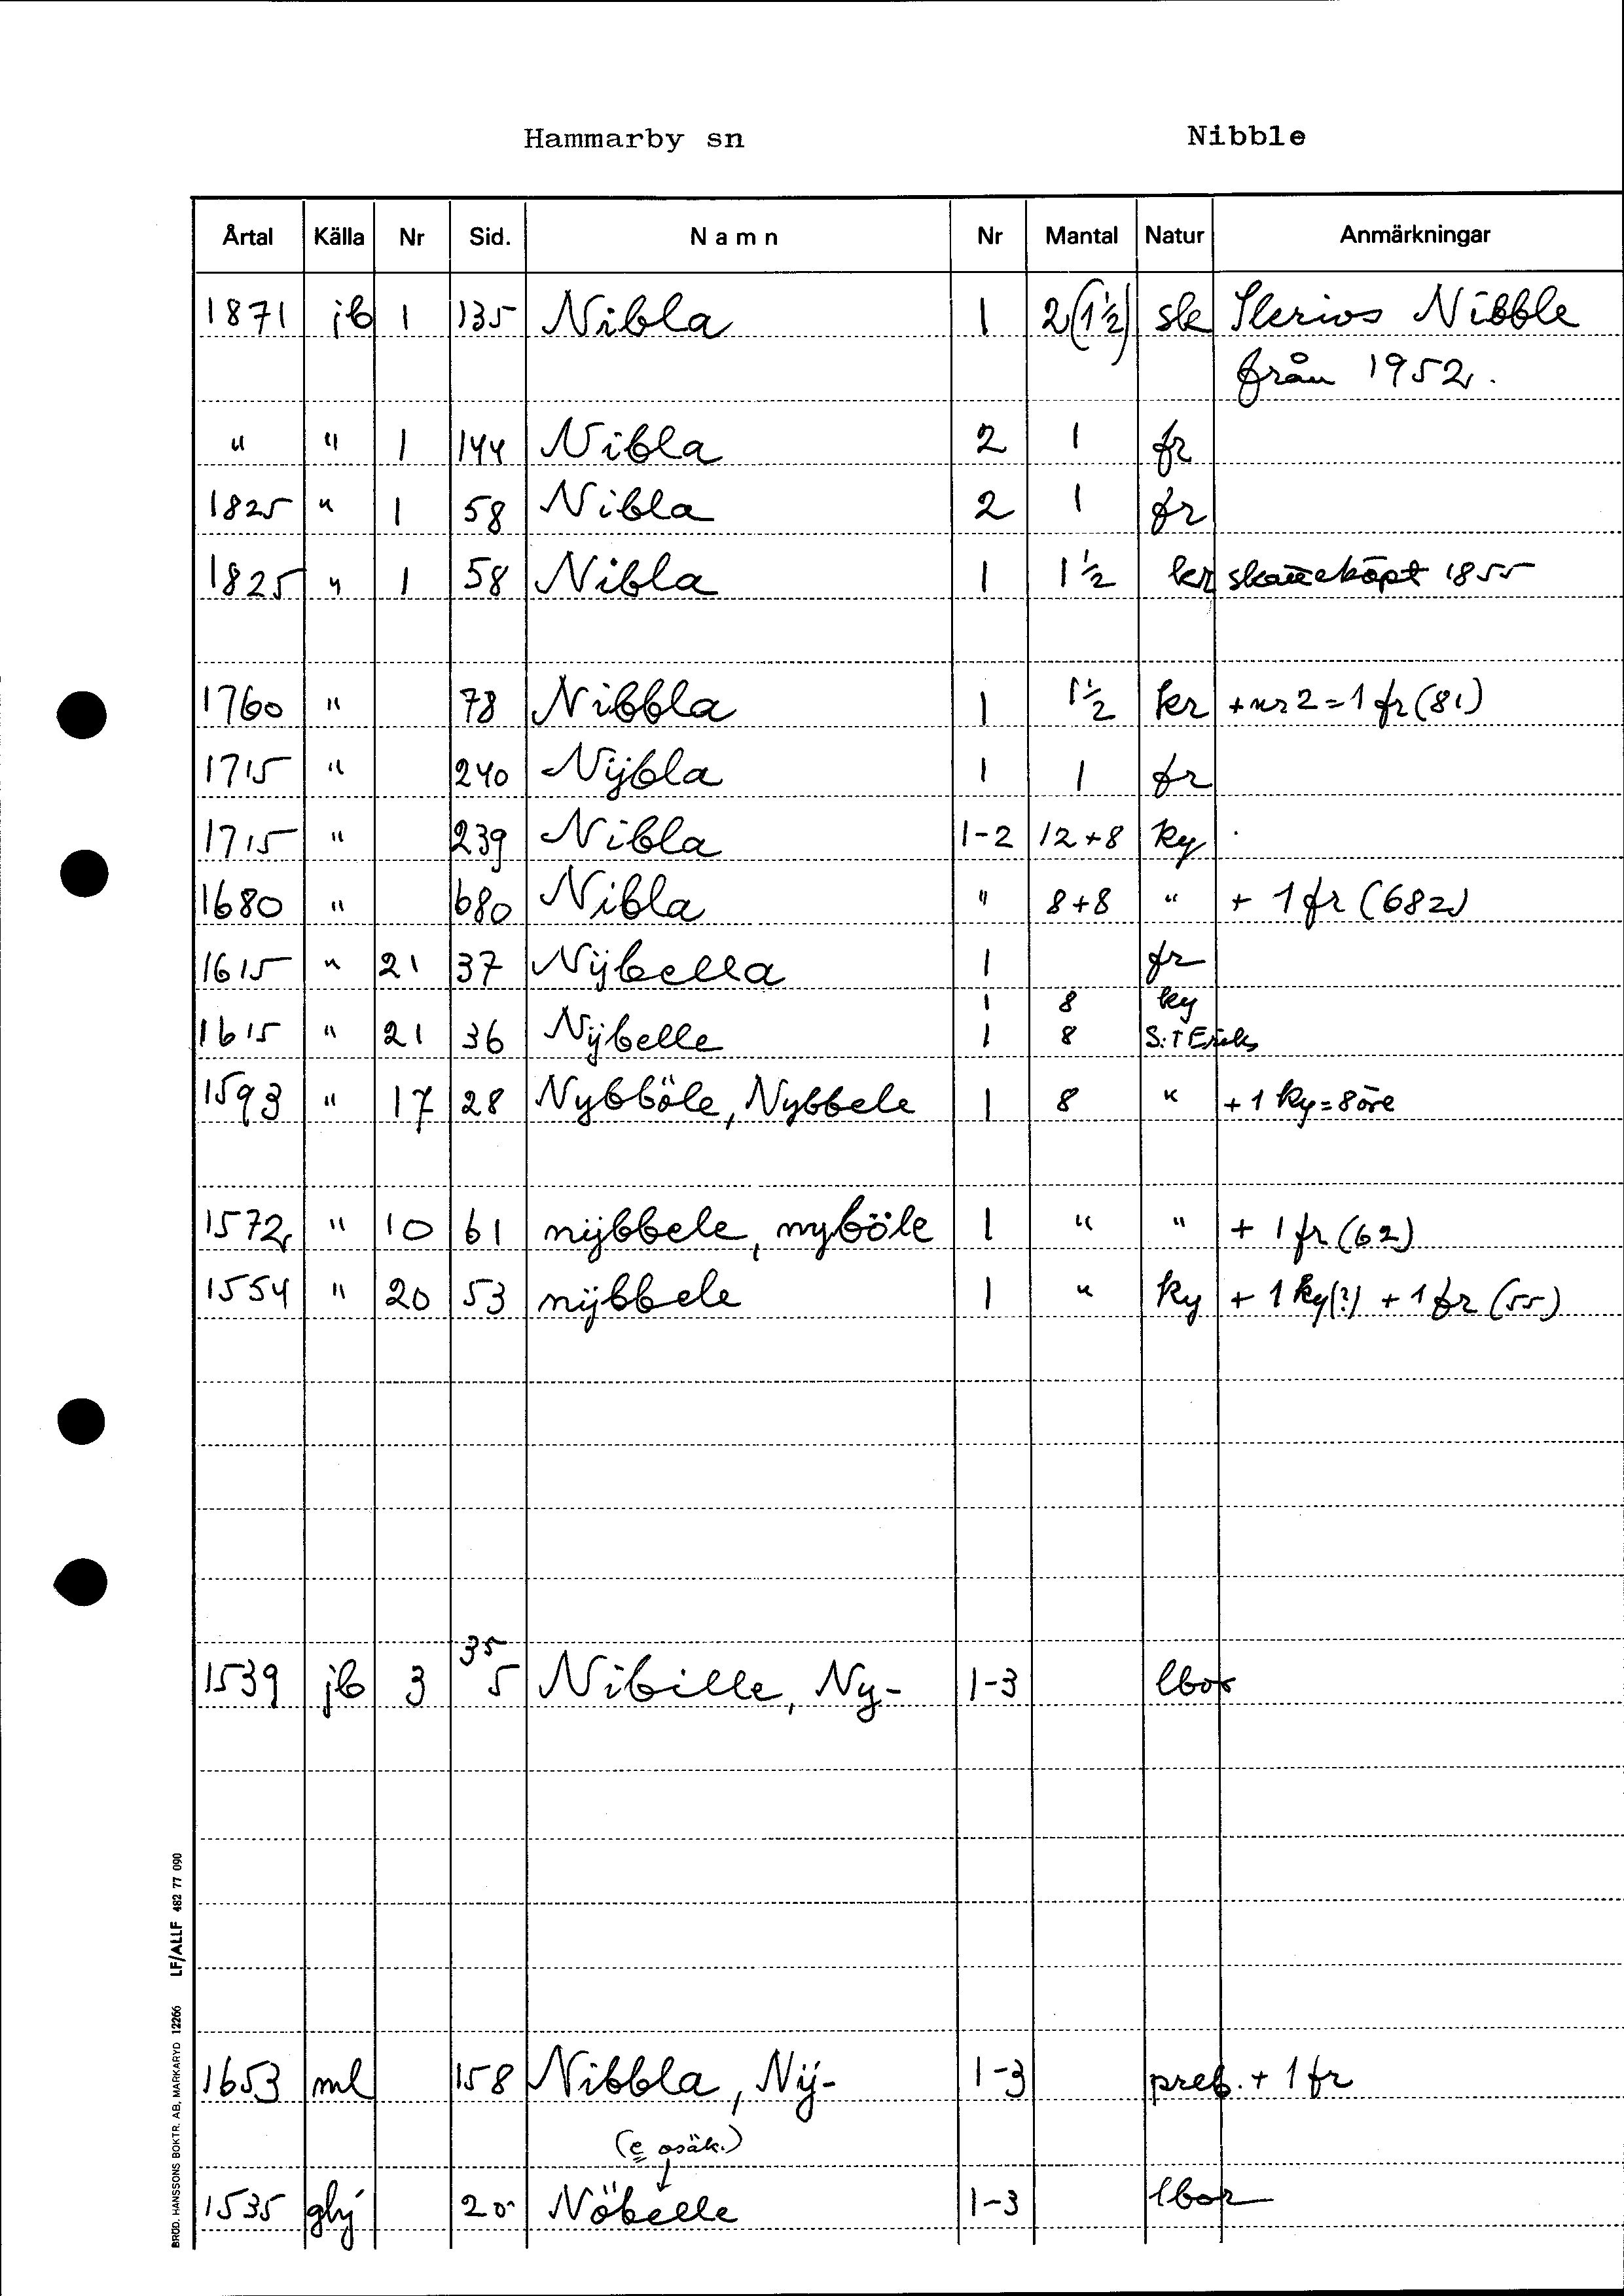 Hammarby sn Nibble
Årtal Källa Nr Sid. Namn Nr Mantal Natur Anmärkningar
1871 jb 1 135 Nibla 1 2(1½) sk Nibble
från 1952.
" " 1 144 Nibla 2 1 fr
1825 " 1 58 Nibla 2 1 fr
1825 " 1 58 Nibla 1 1½ kr skatteköpt 1855
1760 " 78 Nibbla 1 1½ kr + nr 2 = 1 fr (81)
1715 " 240 Nijbla 1 1 fr
1715 " 239 Nibla 1-2 12+8 ky
1680 " 680 Nibla " 8+8 " + 1 fr (682)
1615 " 21 37 Nijbella 1 fr
1 8 ky
1615 " 21 36 Nijbelle 1 8 S:t Eriks
1593 " 17 28 Nybböle, Nybbele 1 8 " + 1 ky = 8 öre
1572 " 10 61 nijbbele, nyböle 1 " " + 1 fr (62)
1554 " 20 53 nijbbele 1 " ky + 1 ky(?) + 1 fr (55)
35
1539 jb 3 5 Nibille, Ny- 1-3 lbor
1653 ml 158 Nibbla, Nÿ- 1-3 preb. + 1 fr
(e osäk.)
1535 ghj 20 Nöbelle 1-3 lbor
BRÖD. HANSSONS BOKTR. AB, MARKARYD 12266 LF/ALLF 482 77 090